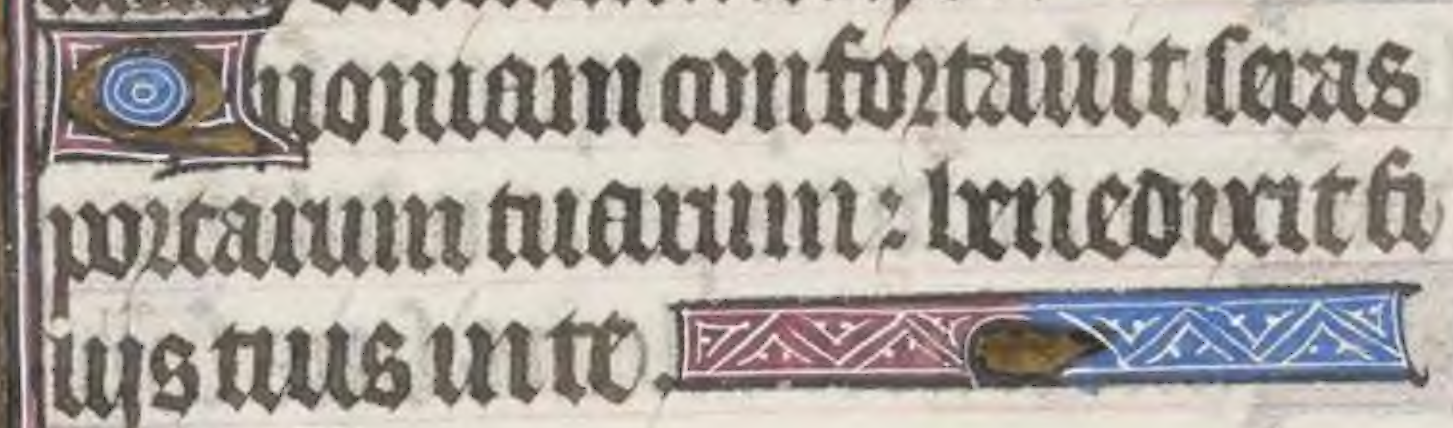 Quoniam confortauit seras
portarum tuarum: benedixit fi
lijs tuis in te.